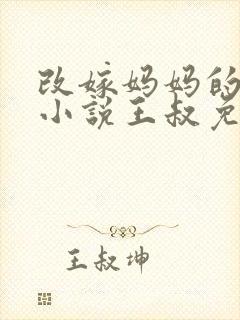 改嫁妈妈的
小说王叔免
王叔坤